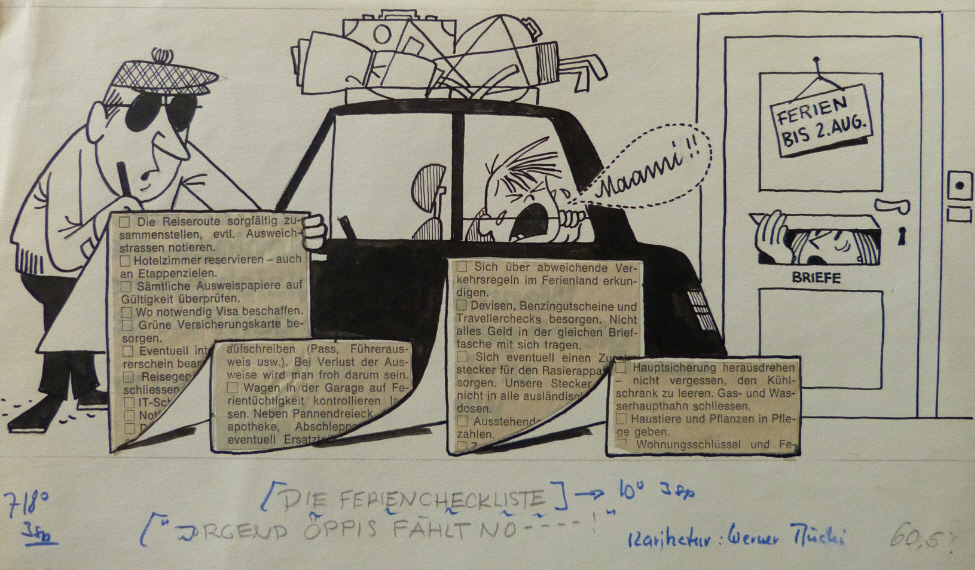 FERIEN
BIS 2. AUG.
Maami!!
BRIEFE
☐ Die Reiseroute sorgfältig zu-
sammenstellen, evtl. Ausweich-
strassen notieren.
☐ Hotelzimmer reservieren – auch
an Etappenzielen.
☐ Sämtliche Ausweispapiere auf
Gültigkeit überprüfen.
☐ Wo notwendig Visa beschaffen.
☐ Grüne Versicherungskarte be-
sorgen.
☐ Eventuell int
rerschein bean
☐ Reisegep
schliessen
☐ IT-Sch
☐ Not
aufschreiben (Pass, Führeraus-
weis usw.). Bei Verlust der Aus-
weise wird man froh darum sein.
☐ Wagen in der Garage auf Fe-
rientüchtigkeit kontrollieren las-
sen. Neben Pannendreieck,
apotheke, Abschlepps
eventuell Ersatzte
☐ Sich über abweichende Ver-
kehrsregeln im Ferienland erkun-
digen.
☐ Devisen, Benzingutscheine und
Travellerchecks besorgen. Nicht
alles Geld in der gleichen Brief-
tasche mit sich tragen.
☐ Sich eventuell einen Zw
stecker für den Rasierappa
sorgen. Unsere Stecker
nicht in alle ausländisc
dosen.
☐ Ausstehende
zahlen.
☐ Hauptsicherung herausdrehen
– nicht vergessen, den Kühl-
schrank zu leeren. Gas- und Was-
serhaupthahn schliessen.
☐ Haustiere und Pflanzen in Pfle-
ge geben.
☐ Wohnungsschlüssel und Fe-
7/8°
3sp
[DIE FERIENCHECKLISTE] → 10° 3sp
["IRGEND ÖPPIS FÄHLT NO ----!"
Karikatur: Werner Büchi
60,5%